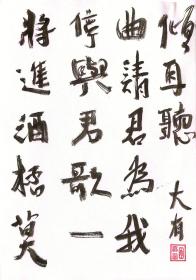 將進酒桮莫
停與君歌一
曲請君為我
傾耳聽
大有